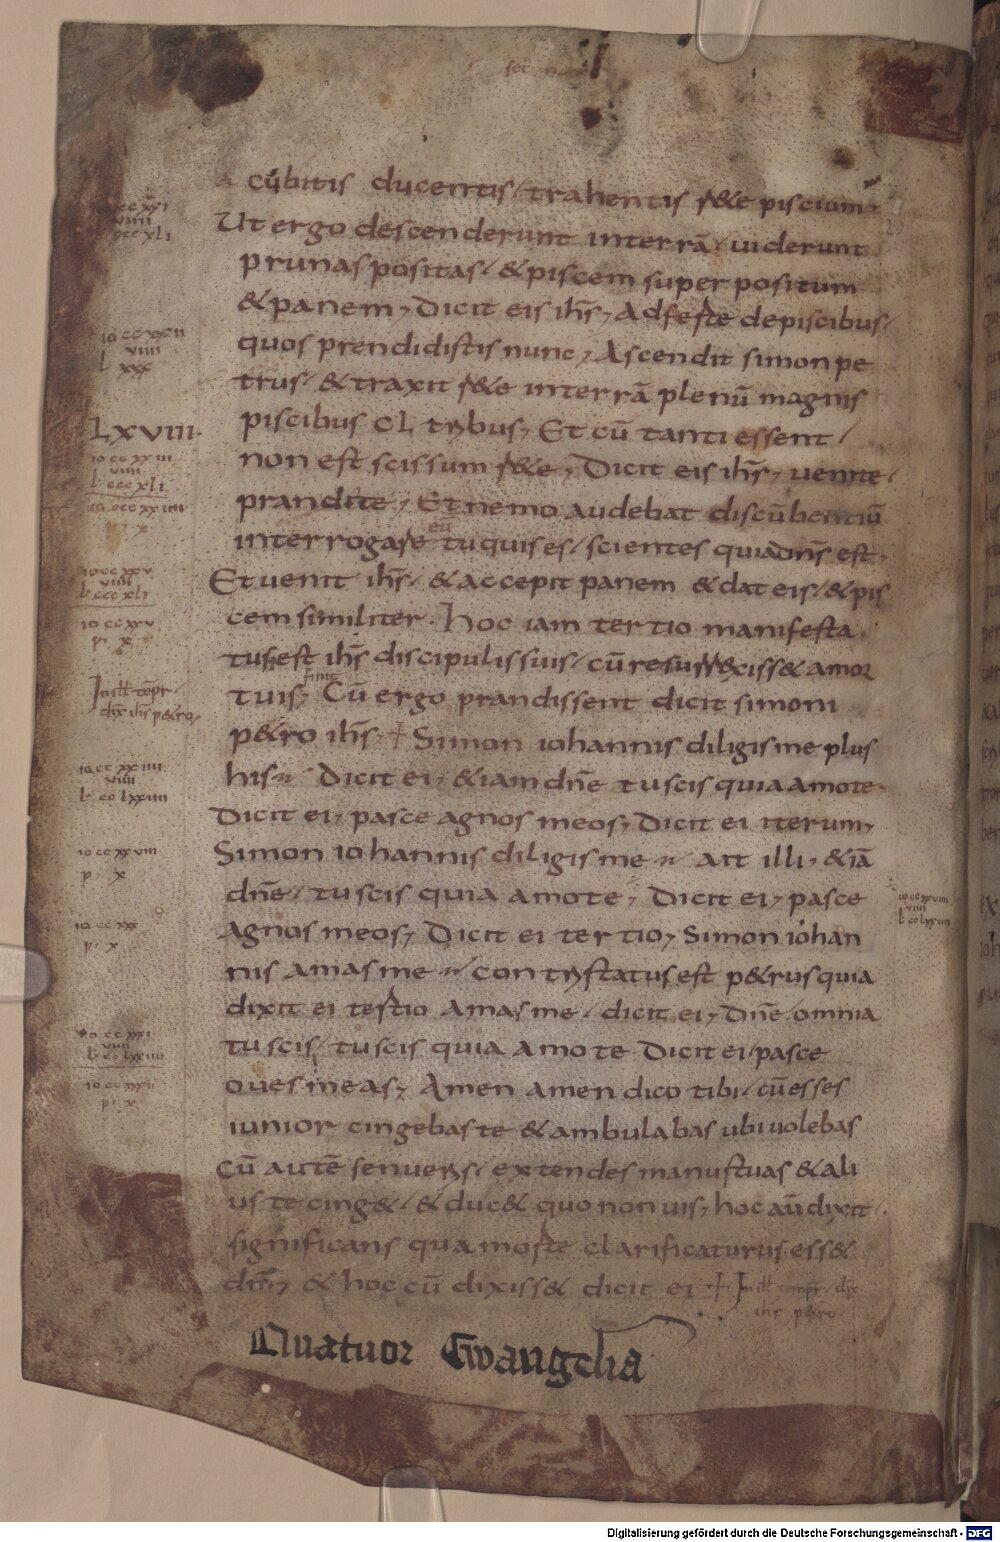 cubitis ducentis, trahentis r&e piscium,
Ut ergo descenderunt interrā, uiderunt
prunas positas, & piscem super positum
& panem, Dicit eis ihs̄, Adferte depiscibus,
quos prendidistis nunc, Ascendit simon pe
trus, & traxit r&e interrā plenū magnis
piscibus CL tribus, Et cū tanti essent,
non est scissum r&e, Dicit eis ihs̄, uenite,
prandite, Et nemo audebat discūbentiū
eū
interrogare tu quis es, scientes quia dn̄s est,
Et uenit ihs̄, & accepit panem & dat eis, & pis
cem similiter. hoc iam tertio manifesta
tus est ihs̄ discipulis suis, cū resurrexiss& amor
finit
tuis, Cū ergo prandissent dicit simoni
p&ro ihs̄, + Simon iohannis diligis me plus
his, Dicit ei, &iam dn̄e tu scis quia amo te,
Dicit ei, pasce agnos meos, Dicit ei iterum,
Simon iohannis diligis me, Ait illi, &iā
dn̄e, tu scis quia amo te, Dicit ei, pasce
agnos meos, Dicit ei tertio, Simon iohan
nis amas me, contristatus est p&rus quia
dixit ei tertio amas me, dicit ei, Dn̄e omnia
tu scis, tu scis quia amo te. Dicit ei, pasce
oues meas, Amen amen dico tibi, cū esses
iunior cingebas te & ambulabas ubi uolebas
Cū autē senueris, extendes manus tuas & ali
us te cing&, & duc& quo non uis, hoc aū dixit,
significans qua morte clarificaturus ess&
dm̄, & hoc cū dixiss& dicit ei +
ihs p&ro
Quatuor Ewangelia
LXVIII
10 cc xx iii
viiii
l ccc xli
10 cc xx iiii
p. x
10 cc xxv
viiii
l ccc xli
10 cc xxv
p. x
In ill tēpr
dix ihs p&ro,
viiii
l cc lxxviii
10 cc xx viii
p. x
10 cc xxx
p. x
10 cc xxxi
viiii
p. x
Digitalisierung gefördert durch die Deutsche Forschungsgemeinschaft - DFG